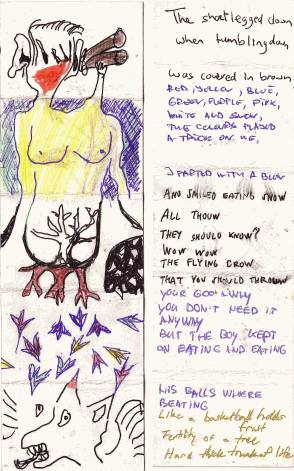 The short legged clown
when tumbling down
was covered in brown
RED, YELLOW, BLUE,
GREEN, PURPLE, PINK,
WHITE AND SNOW,
THE COLOURS PLAYED
A TRICK ON ME,
I PARTED WITH A BLOW
AND SMILED EATING SNOW
ALL THOUW
THEY SHOULD KNOW?
WOW WOW
THE FLYING CROW
THAT YOU SHOULD THROUW
YOUR GOO AWAY
YOU DON'T NEED IT
ANYWAY
BUT THE BOY KEPT
ON EATING AND EATING
HIS BALLS WHERE
BEATING
Like a basketball holder
fruit
Fertility of a tree
Hard thick trunk of life